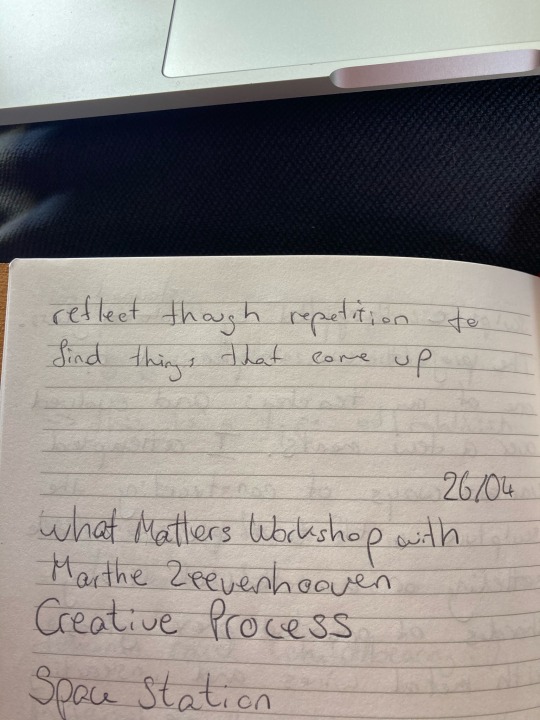 reflect though repetition to
find things that come up
26/04
what Matters Workshop with
Marthe Zeevenhooven
Creative Process
Space Station